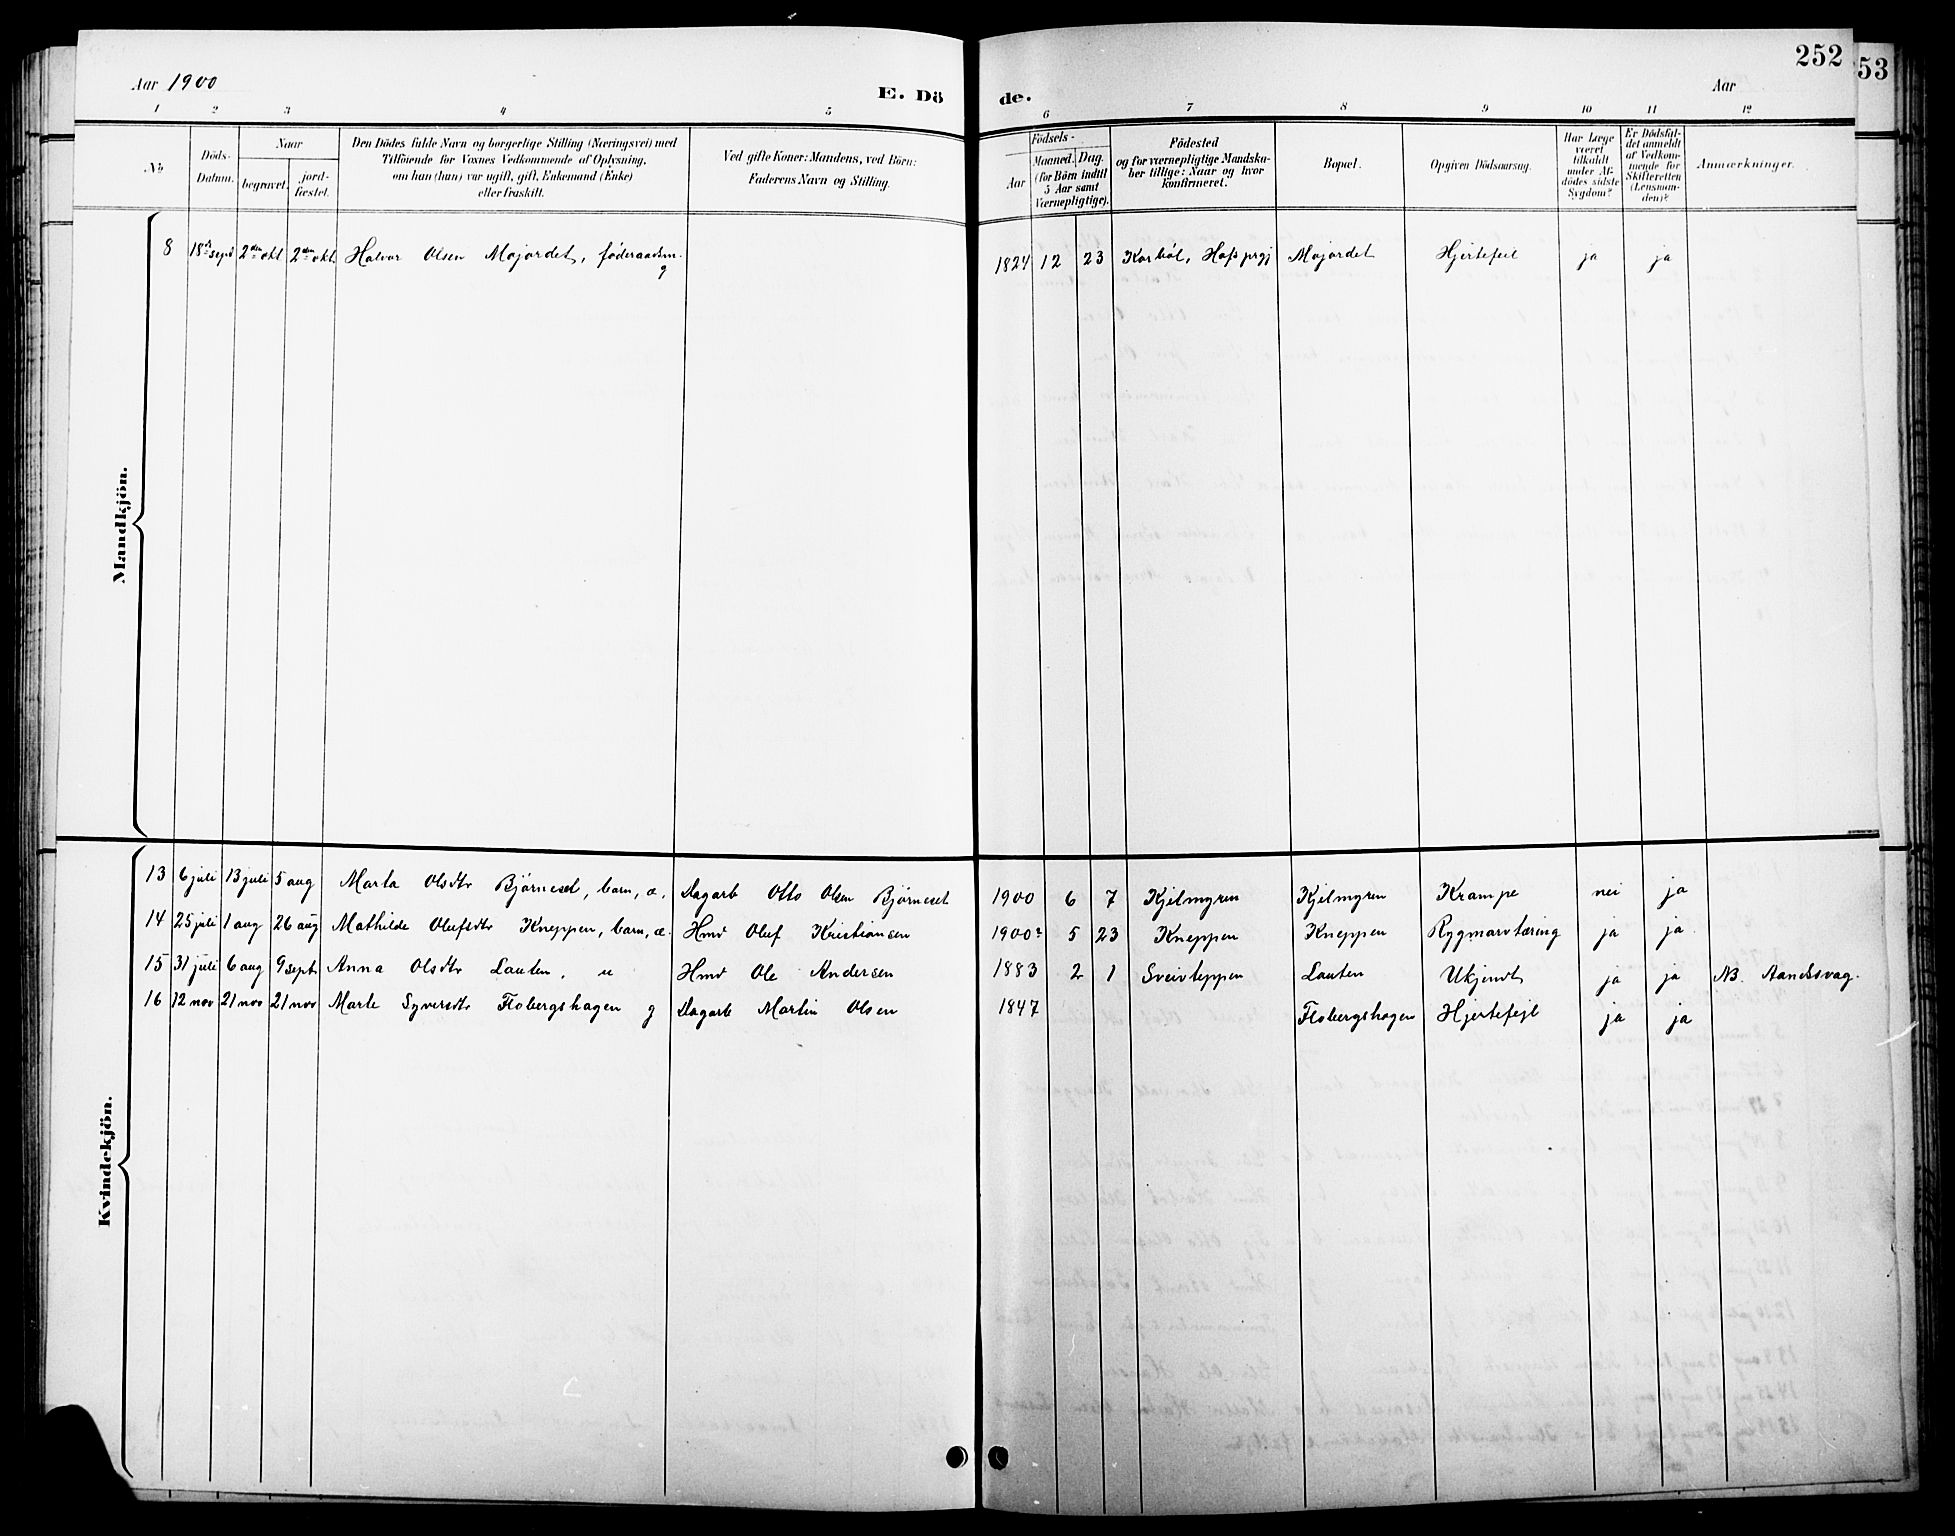 252
53
Aar 1900
E. Dö
de.
Aar
1 2 3 4 5 6 7 8 9 10 11 12
No
Döds-
Datum.
Naar
begravet.
jord-
fæstet.
Den Dödes fulde Navn og borgerlige Stilling (Næringsvei) med
Tilföiende for Voxnes Vedkommende af Oplysning,
om han (hun) var ugift, gift, Enkemand (Enke)
eller fraskilt.
Ved gifte Koner: Mandens, ved Börn:
Faderens Navn og Stilling.
Födsels-
Aar
Maaned. Dag.
(for Börn indtil
5 Aar samt
Værnepligtige).
Födested
og for værnepligtige Mandska-
ber tillige: Naar og hvor
konfirmeret.
Bopæl.
Opgiven Dödsaarsag.
Har Læge
været
tilkaldt
under Af-
dödes sidste
Sygdom?
Er Dödsfal-
det anmeldt
af Vedkom-
mende for
Skifteretten
(Lensman-
den)?
Anmærkninger.
Mandkjön.
8 18de sept 2den okt 2den okt. Halvor Olsen Mojordet, föderaadsm. g 1824 12 23 Karböl, Hofs prgj Mojordet Hjertefeil ja ja
Kvindekjön.
13 6 juli 13 juli 5 aug Marta Olsdtr Bjørneset, barn, æ. Dagarb Otto Olsen Bjørneset 1900 6 7 Kjilmyren Kjilmyren Krampe nei ja
14 25 juli 1 aug 26 aug Mathilde Olufsdtr Kneppen, barn, æ. Hmd Oluf Kristiansen 1900 5 23 Kneppen Kneppen Rygmarvtæring ja ja
15 31 juli 6 aug 9 sept Anna Olsdtr Lauten, u Hmd Ole Andersen 1883 2 1 Sveivteppen Lauten Ukjendt ja ja NB. Aandssvag.
16 12 nov 21 nov 21 nov Marte Syversdtr Flobergshagen g Dagarb Martin Olsen 1847 Flobergshagen Hjertefejl ja ja